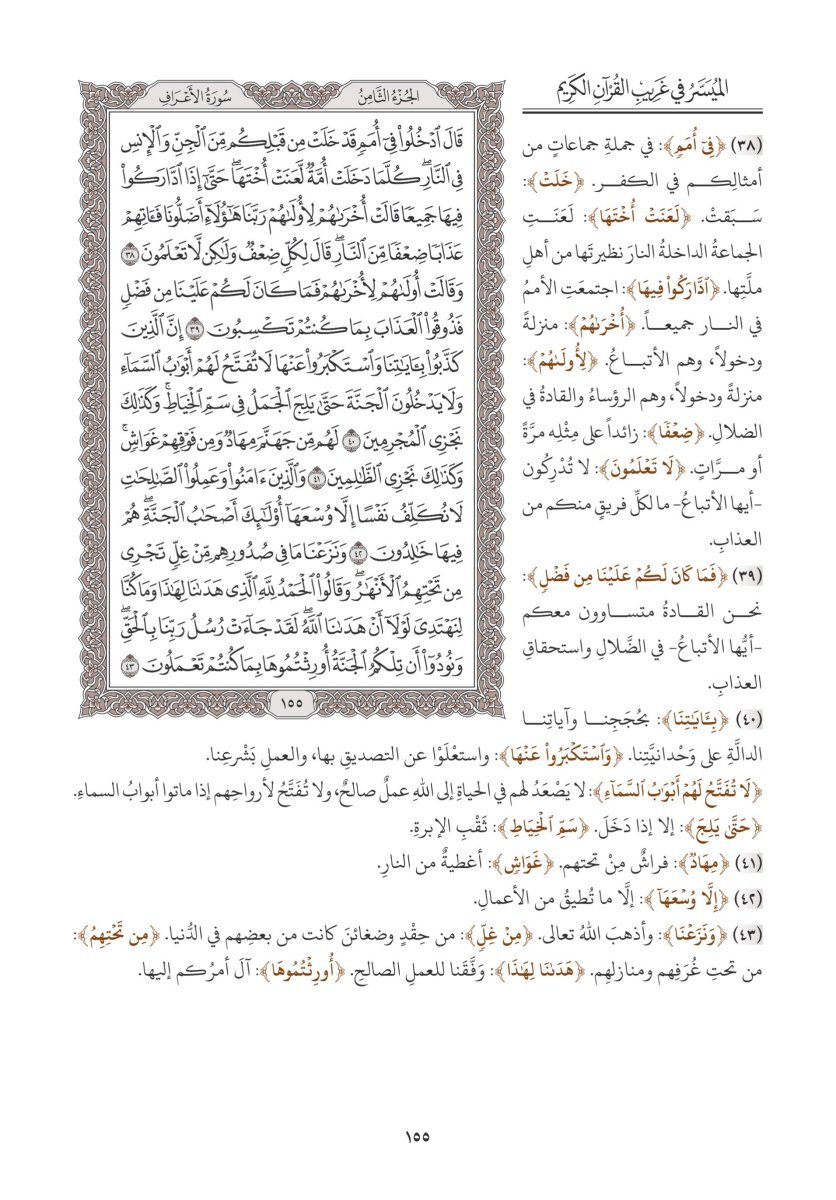 الميسر في غريب القرآن الكريم
(٣٨) ﴿فِيٓ أُمَمٖ﴾: في جملةِ جماعاتٍ من
أمثالِكم في الكفر. ﴿خَلَتۡ﴾:
سَبَقتْ. ﴿لَّعَنَتۡ أُخۡتَهَا﴾: لَعَنَتِ
الجماعةُ الداخلةُ النارَ نظيرتَها من أهلِ
ملَّتِها. ﴿ٱدَّارَكُواْ فِيهَا﴾: اجتمعَتِ الأممُ
في النار جميعاً. ﴿أُخۡرَىٰهُمۡ﴾: منزلةً
ودخولاً، وهم الأتباعُ. ﴿لِأُولَىٰهُمۡ﴾:
منزلةً ودخولاً، وهم الرؤساءُ والقادةُ في
الضلالِ. ﴿ضِعۡفٗا﴾: زائداً على مِثْلِه مرَّةً
أو مرَّاتٍ. ﴿لَا تَعۡلَمُونَ﴾: لا تُدْرِكُون
-أيها الأتباعُ- ما لكلِّ فريقٍ منكم من
العذابِ.
(٣٩) ﴿فَمَا كَانَ لَكُمۡ عَلَيۡنَا مِن فَضۡلٖ﴾:
نحن القادةُ متساوون معكم
-أيُّها الأتباعُ- في الضَّلالِ واستحقاقِ
العذابِ.
(٤٠) ﴿بِـَٔايَٰتِنَا﴾: بحُجَجِنا وآياتِنا
الدالَّةِ على وَحْدانيَّتِنا. ﴿وَٱسۡتَكۡبَرُواْ عَنۡهَا﴾: واستعْلَوْا عن التصديقِ بها، والعملِ بشَرْعِنا.
﴿لَا تُفَتَّحُ لَهُمۡ أَبۡوَٰبُ ٱلسَّمَآءِ﴾: لا يَصْعَدُ لهم في الحياةِ إلى اللهِ عملٌ صالحٌ، ولا تُفَتَّحُ لأرواحِهم إذا ماتوا أبوابُ السماءِ.
﴿حَتَّىٰ يَلِجَ﴾: إلا إذا دَخَلَ. ﴿سَمِّ ٱلۡخِيَاطِ﴾: ثَقْبِ الإبرةِ.
(٤١) ﴿مِهَادٞ﴾: فراشٌ مِنْ تحتهم. ﴿غَوَاشٖ﴾: أغطيةٌ من النارِ.
(٤٢) ﴿إِلَّا وُسۡعَهَآ﴾: إلَّا ما تُطيقُ من الأعمالِ.
(٤٣) ﴿وَنَزَعۡنَا﴾: وأذهبَ اللهُ تعالى. ﴿مِنۡ غِلّٖ﴾: من حِقْدٍ وضغائنَ كانت من بعضِهم في الدُّنيا. ﴿مِن تَحۡتِهِمُ﴾:
من تحتِ غُرَفِهم ومنازلِهم. ﴿هَدَىٰنَا لِهَٰذَا﴾: وَفَّقَنا للعملِ الصالحِ. ﴿أُورِثۡتُمُوهَا﴾: آلَ أمرُكم إليها.
الجزء الثامن
سورة الأعراف
قَالَ ٱدۡخُلُواْ فِيٓ أُمَمٖ قَدۡ خَلَتۡ مِن قَبۡلِكُم مِّنَ ٱلۡجِنِّ وَٱلۡإِنسِ
فِي ٱلنَّارِۖ كُلَّمَا دَخَلَتۡ أُمَّةٞ لَّعَنَتۡ أُخۡتَهَاۖ حَتَّىٰٓ إِذَا ٱدَّارَكُواْ
فِيهَا جَمِيعٗا قَالَتۡ أُخۡرَىٰهُمۡ لِأُولَىٰهُمۡ رَبَّنَا هَٰٓؤُلَآءِ أَضَلُّونَا فَـَٔاتِهِمۡ
عَذَابٗا ضِعۡفٗا مِّنَ ٱلنَّارِۖ قَالَ لِكُلّٖ ضِعۡفٞ وَلَٰكِن لَّا تَعۡلَمُونَ ٣٨
وَقَالَتۡ أُولَىٰهُمۡ لِأُخۡرَىٰهُمۡ فَمَا كَانَ لَكُمۡ عَلَيۡنَا مِن فَضۡلٖ
فَذُوقُواْ ٱلۡعَذَابَ بِمَا كُنتُمۡ تَكۡسِبُونَ ٣٩ إِنَّ ٱلَّذِينَ
كَذَّبُواْ بِـَٔايَٰتِنَا وَٱسۡتَكۡبَرُواْ عَنۡهَا لَا تُفَتَّحُ لَهُمۡ أَبۡوَٰبُ ٱلسَّمَآءِ
وَلَا يَدۡخُلُونَ ٱلۡجَنَّةَ حَتَّىٰ يَلِجَ ٱلۡجَمَلُ فِي سَمِّ ٱلۡخِيَاطِۚ وَكَذَٰلِكَ
نَجۡزِي ٱلۡمُجۡرِمِينَ ٤٠ لَهُم مِّن جَهَنَّمَ مِهَادٞ وَمِن فَوۡقِهِمۡ غَوَاشٖۚ
وَكَذَٰلِكَ نَجۡزِي ٱلظَّٰلِمِينَ ٤١ وَٱلَّذِينَ ءَامَنُواْ وَعَمِلُواْ ٱلصَّٰلِحَٰتِ
لَا نُكَلِّفُ نَفۡسًا إِلَّا وُسۡعَهَآ أُوْلَٰٓئِكَ أَصۡحَٰبُ ٱلۡجَنَّةِۖ هُمۡ
فِيهَا خَٰلِدُونَ ٤٢ وَنَزَعۡنَا مَا فِي صُدُورِهِم مِّنۡ غِلّٖ تَجۡرِي
مِن تَحۡتِهِمُ ٱلۡأَنۡهَٰرُۖ وَقَالُواْ ٱلۡحَمۡدُ لِلَّهِ ٱلَّذِي هَدَىٰنَا لِهَٰذَا وَمَا كُنَّا
لِنَهۡتَدِيَ لَوۡلَآ أَنۡ هَدَىٰنَا ٱللَّهُۖ لَقَدۡ جَآءَتۡ رُسُلُ رَبِّنَا بِٱلۡحَقِّۖ
وَنُودُوٓاْ أَن تِلۡكُمُ ٱلۡجَنَّةُ أُورِثۡتُمُوهَا بِمَا كُنتُمۡ تَعۡمَلُونَ ٤٣
١٥٥
١٥٥